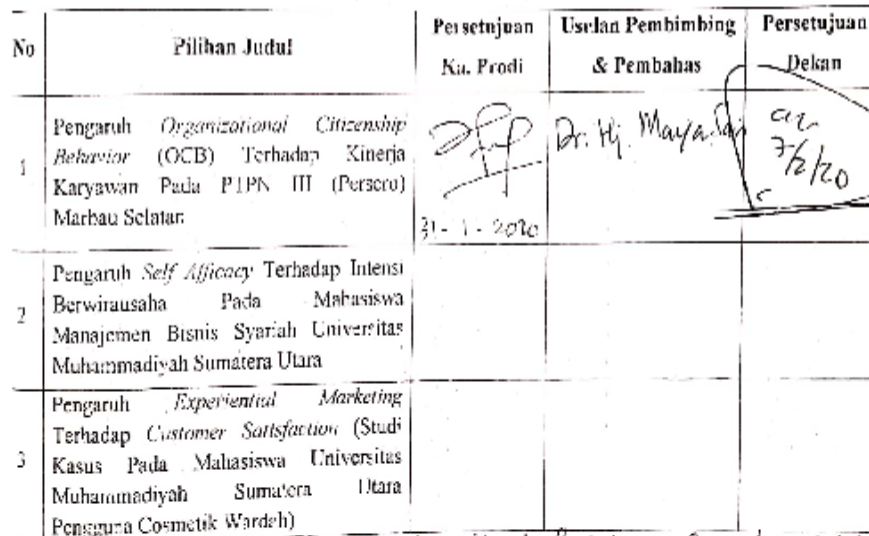 No
Pilihan Judul
Persetujuan
Ka. Prodi
Usulan Pembimbing
& Pembahas
Persetujuan
Dekan
1
Pengaruh Organizational Citizenship
Behavior (OCB) Terhadap Kinerja
Karyawan Pada PTPN III (Persero)
Marbau Selatan
31-1-2020
Dr. Hj. Maya Sari
7/2/20
2
Pengaruh Self Afficacy Terhadap Intensi
Berwirausaha Pada Mahasiswa
Manajemen Bisnis Syariah Universitas
Muhammadiyah Sumatera Utara
3
Pengaruh Experiential Marketing
Terhadap Customer Satisfaction (Studi
Kasus Pada Mahasiswa Universitas
Muhammadiyah Sumatera Utara
Pengguna Cosmetik Wardah)